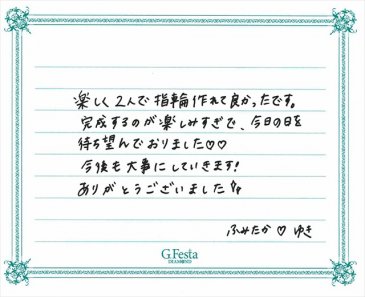 楽しく2人で指輪作れて良かったです。
完成するのが楽しみすぎで、今日の日を
待ち望んでおりました♡♡
今後も大事にしていきます!
ありがとうございました
ふみたか ♡ ゆき
G.Festa
DIAMOND